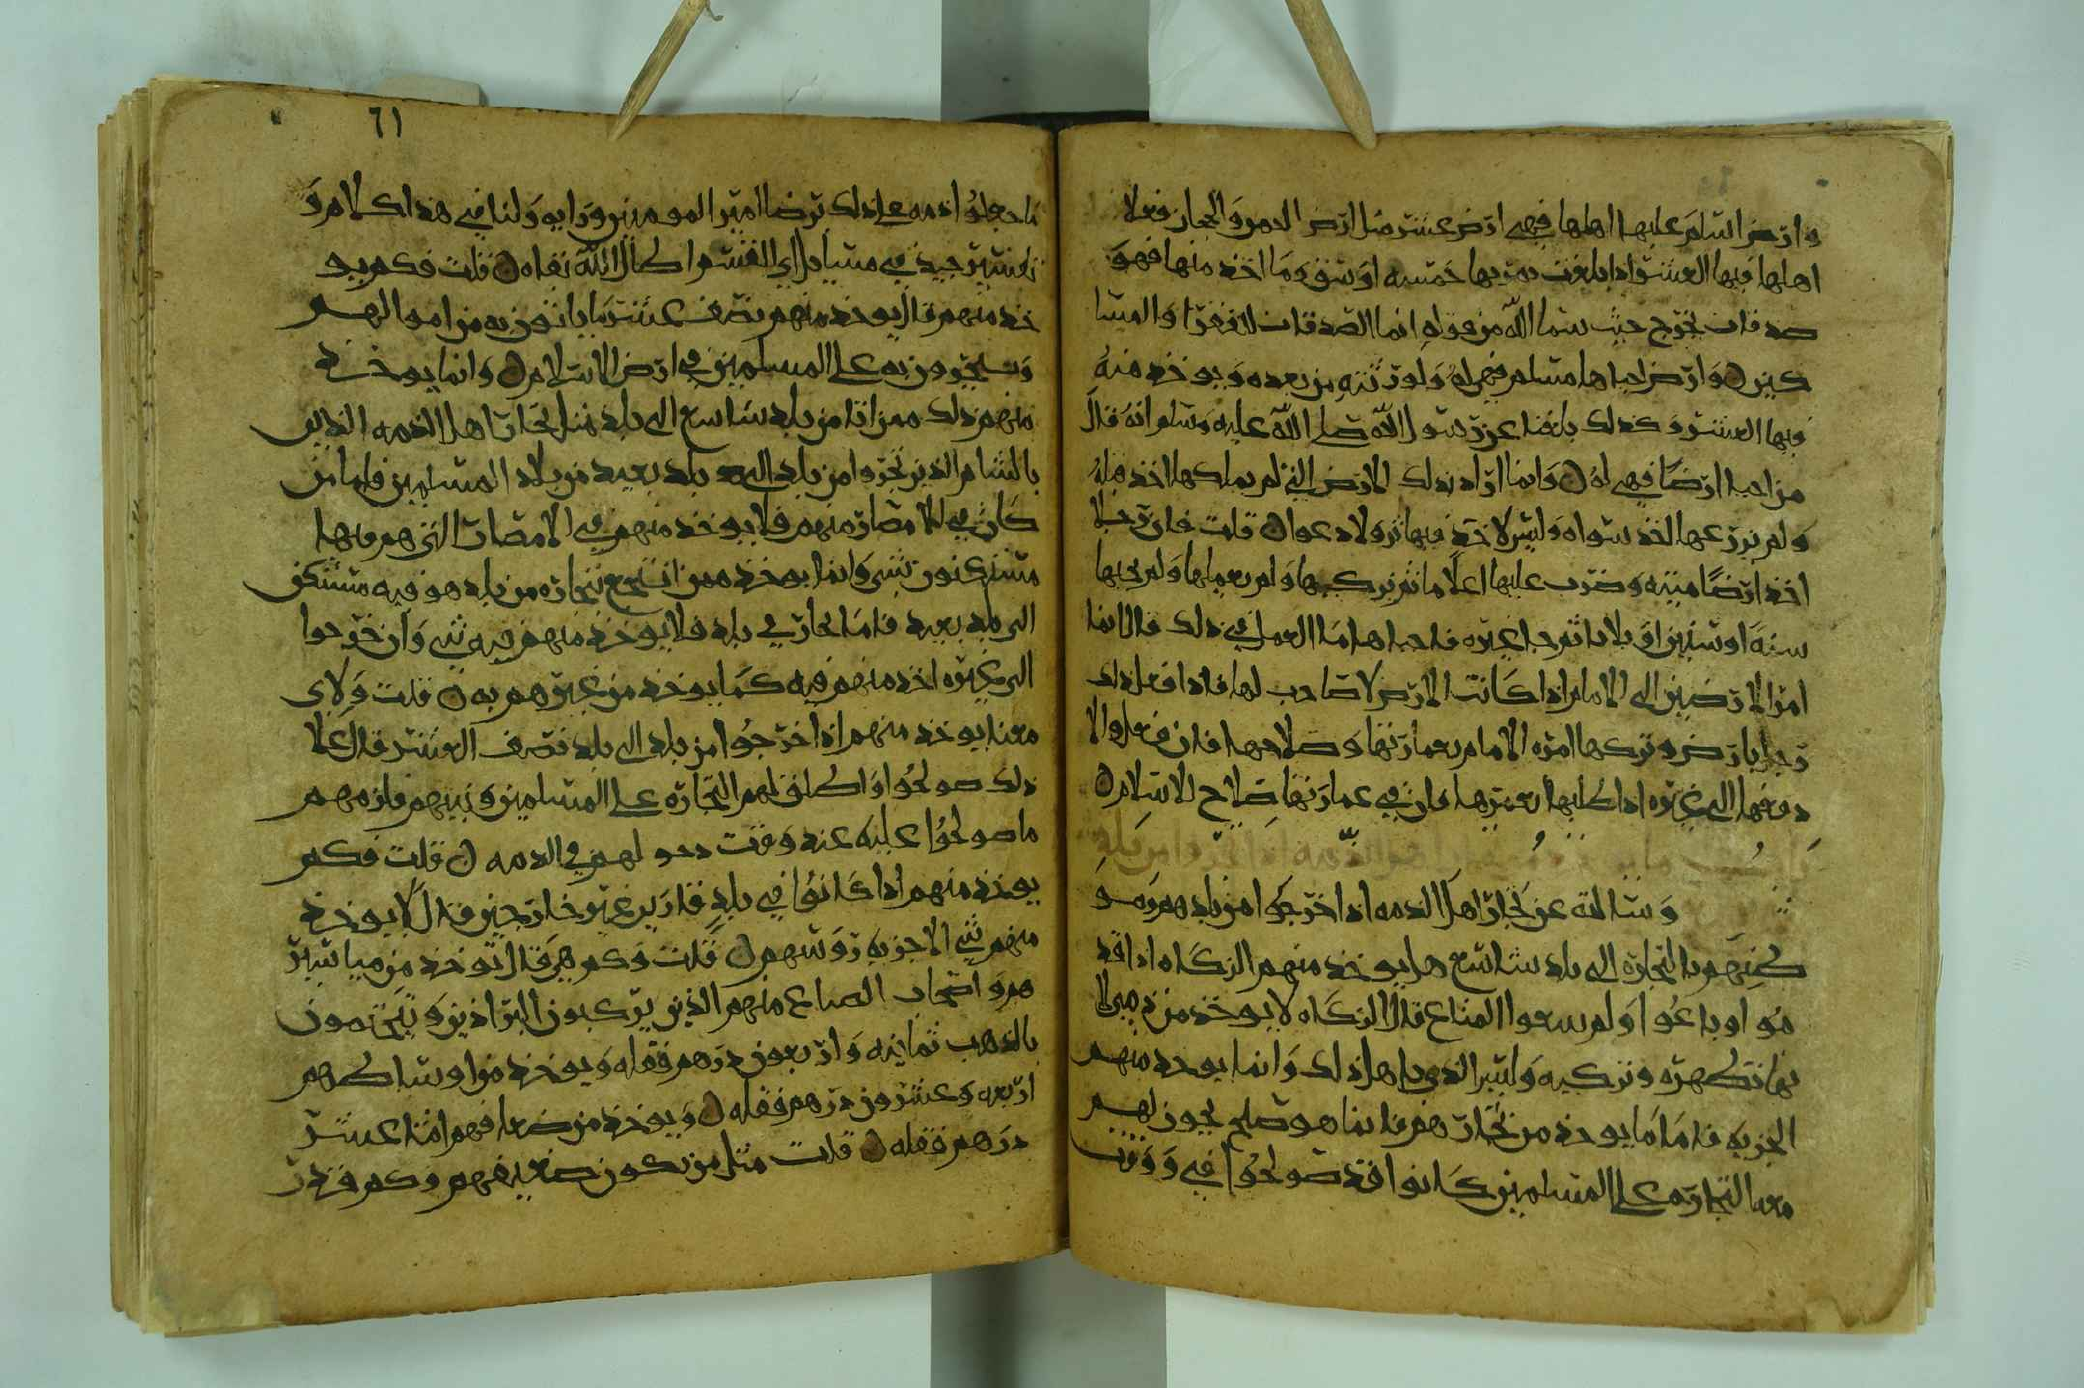 وارض اسلم عليها اهلها فهي ارض عشر مثل ارض اليمن والحجاز فعلا
اهلها فيها العشر اذا بلغت ثمرتها خمسه اوسق وما اخذ منها فهو
صدقات تخرج حيث سما الله من قوله انما الصدقات للفقرا والمسا
كين وارض احياها مسلم فهي له ولورثته من بعده ويوخذ منه
فيها العشر وكذلك بلغنا عن رسول الله صلى الله عليه وسلم انه قال
من احيا ارضا فهي له وانما اراد بذلك الارض التي لم يملكها احد قبله
ولم يزرعها احد سواه وليس لاحد فيها اثر ولا دعوا قلت فان رجلا
اخذ ارضا ميته وضرب عليها اعلاما ثم تركها ولم يعملها ولم يحيها
سنه او سنين او ثلاثا ثم جا غيره فاحياها ما العمل في ذلك قال انما
امر الارضين الى الامام اذا كانت الارض لا صاحب لها فاذا فعل ذلك
رجل بارض وتركها امره الامام بعمارتها وصلاحها فان فعل والا
دفعها الى غيره اذا طلبها ليعمرها فان في عمارتها صلاح للاسلام
باب ما يوخذ من اهل الذمه اذا اتجروا من بلد
وسالته عن تجار اهل الذمه اذا خرجوا من بلدهم ومو
طنهم بالتجاره الى بلد شاسع هل يوخذ منهم الزكاه اذا قد
موا او باعوا ولم يبيعوا المتاع قال الزكاه لا يوخذ من ذمي لا
نها تطهره وتزكيه وليس الذمي باهل ذلك وانما يوخذ منهم
الجزيه فاما ما يوخذ من تجارهم فانما هو صلح يجوز لهم
معه التجاره على المسلمين كانوا قد صولحوا في ووقت
٦١
ما جعلوا ذمه على ذلك برضا امير المومنين ورايه ولنا في هذا كلام و
تفسير جيد في مسايل ابي القسم اطال الله بقاه قلت فكم يو
خذ منهم قال يوخذ منهم نصف عشر ما ياتون به من اموالهم
ويتجرون به على المسلمين في ارض الاسلام وانما يوخذ
منهم ذلك ممن اتا من بلد شاسع الى بلد مثل تجار اهل الذمه الذين
بالشام الذين تجروا من بلد الى بلد بعيد من بلاد المسلمين فاما من
كان في الامصار منهم فلا يوخذ منهم في الامصار التي هم فيها
مستكنون شي وانما يوخذ ممن انتجع بتجاره من بلد هو فيه مستكن
الى بلد بعيد فاما تجار في بلد فلا يوخذ منهم فيه شي وان خرجوا
الى غيره اخذ منهم فيه كما يوخذ من غيرهم به قلت ولاي
معنا يوخذ منهم اذا خرجوا من بلد الى بلد نصف العشر قال على
ذلك صولحوا واطلق لهم التجاره على المسلمين وبينهم فلزمهم
ما صولحوا عليه عند وقت دخولهم في الذمه قلت فكم
يوخذ منهم اذا كانوا في بلد قارين غير خارجين قال لا يوخذ
منهم شي الا جزيه روسهم قلت وكم هي قال توخذ من مياسير
هم واصحاب الصباع منهم الذين يركبون البراذين ويتختمون
بالذهب ثمانيه واربعون درهم قفله ويوخذ من اوساطهم
اربعه وعشرون درهم قفله ويوخذ من ضعافهم اثنا عشر
درهم قفله قلت مثل من يكون ضعيفهم وكم قدر